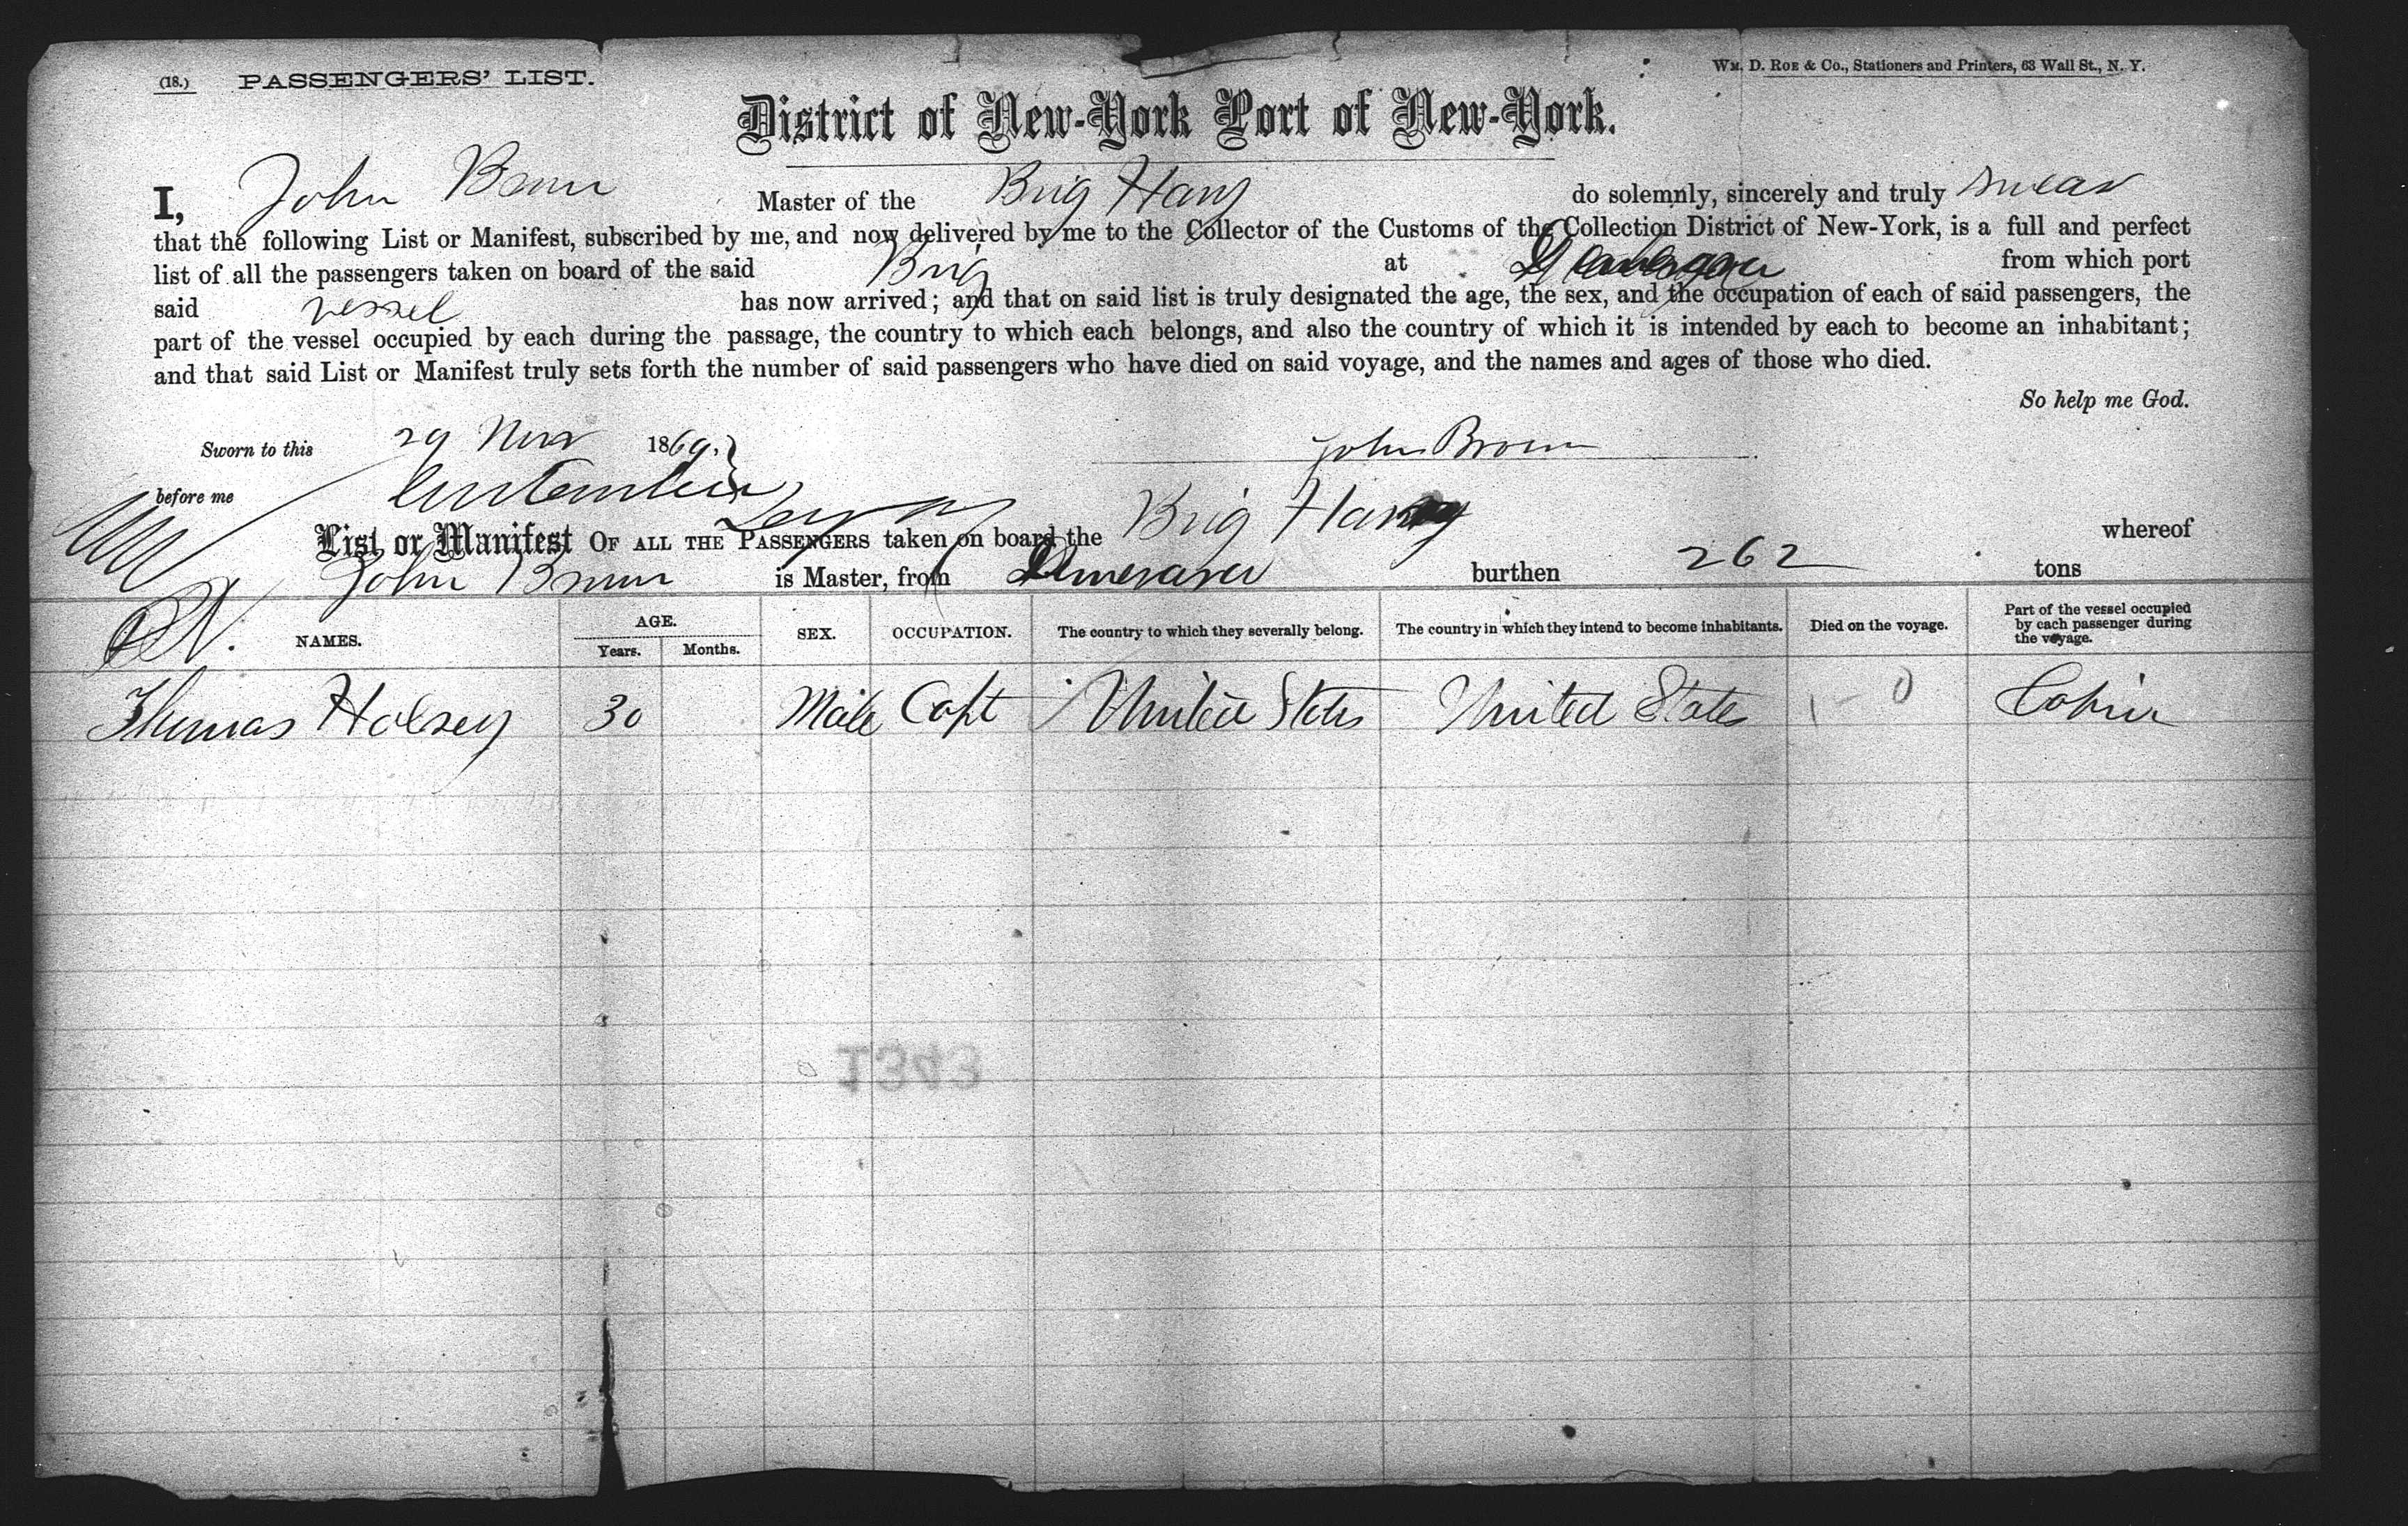 (18.) PASSENGERS' LIST.
Wm. D. Roe & Co., Stationers and Printers, 63 Wall St., N. Y.
District of New-York Port of New-York.
I, John Brown Master of the Brig Harry do solemnly, sincerely and truly swear
that the following List or Manifest, subscribed by me, and now delivered by me to the Collector of the Customs of the Collection District of New-York, is a full and perfect
list of all the passengers taken on board of the said Brig at from which port
said vessel has now arrived; and that on said list is truly designated the age, the sex, and the occupation of each of said passengers, the
part of the vessel occupied by each during the passage, the country to which each belongs, and also the country of which it is intended by each to become an inhabitant;
and that said List or Manifest truly sets forth the number of said passengers who have died on said voyage, and the names and ages of those who died.
So help me God.
Sworn to this 29 Nov 1869.
John Brown
before me
List or Manifest OF ALL THE PASSENGERS taken on board the Brig Harry whereof
John Brown is Master, from Demerara burthen 262 tons
NAMES. AGE. Years. Months. SEX. OCCUPATION. The country to which they severally belong. The country in which they intend to become inhabitants. Died on the voyage. Part of the vessel occupied by each passenger during the voyage.
Thomas Halsey 30 Male Capt United States United States 0 Cabin
1343